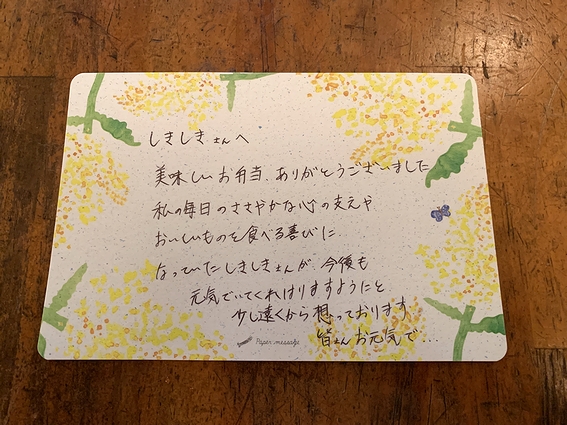 しきしきさんへ
美味しいお弁当、ありがとうございました
私の毎日のささやかな心の支えや
おいしいものを食べる喜びに
なっていたしきしきさんが、今後も
元気でいてくれはりますようにと
少し遠くから想っております
皆さんお元気で...
Paper message